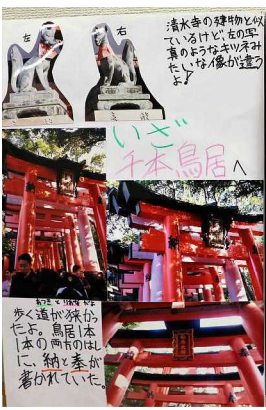 左
右
清水寺の建物と似
ているけど、左の写
真のようなキツネみ
たいな像が違う
よ♪
いざ
千本鳥居へ
歩く道が狭かっ
たよ。鳥居1本
1本の両方のはし
に、納と奉が
書かれていた。